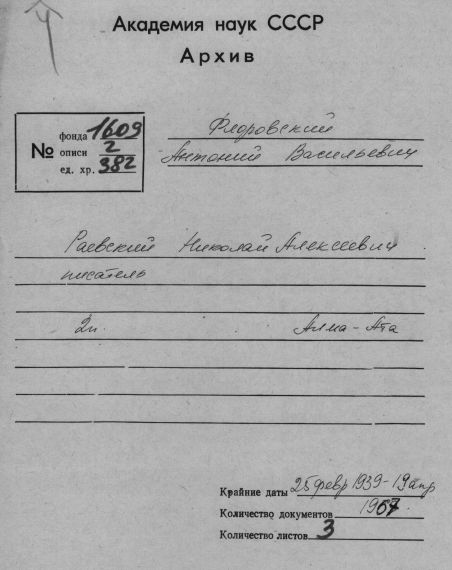 Академия наук СССР
Архив
№ фонда 1609
описи 2
ед. хр. 382
Флоровский
Антоний Васильевич
Раевский Николай Алексеевич
писатель
2п. Алма-Ата
Крайние даты 25 февр 1939 - 19 апр
1967.
Количество документов
Количество листов 3